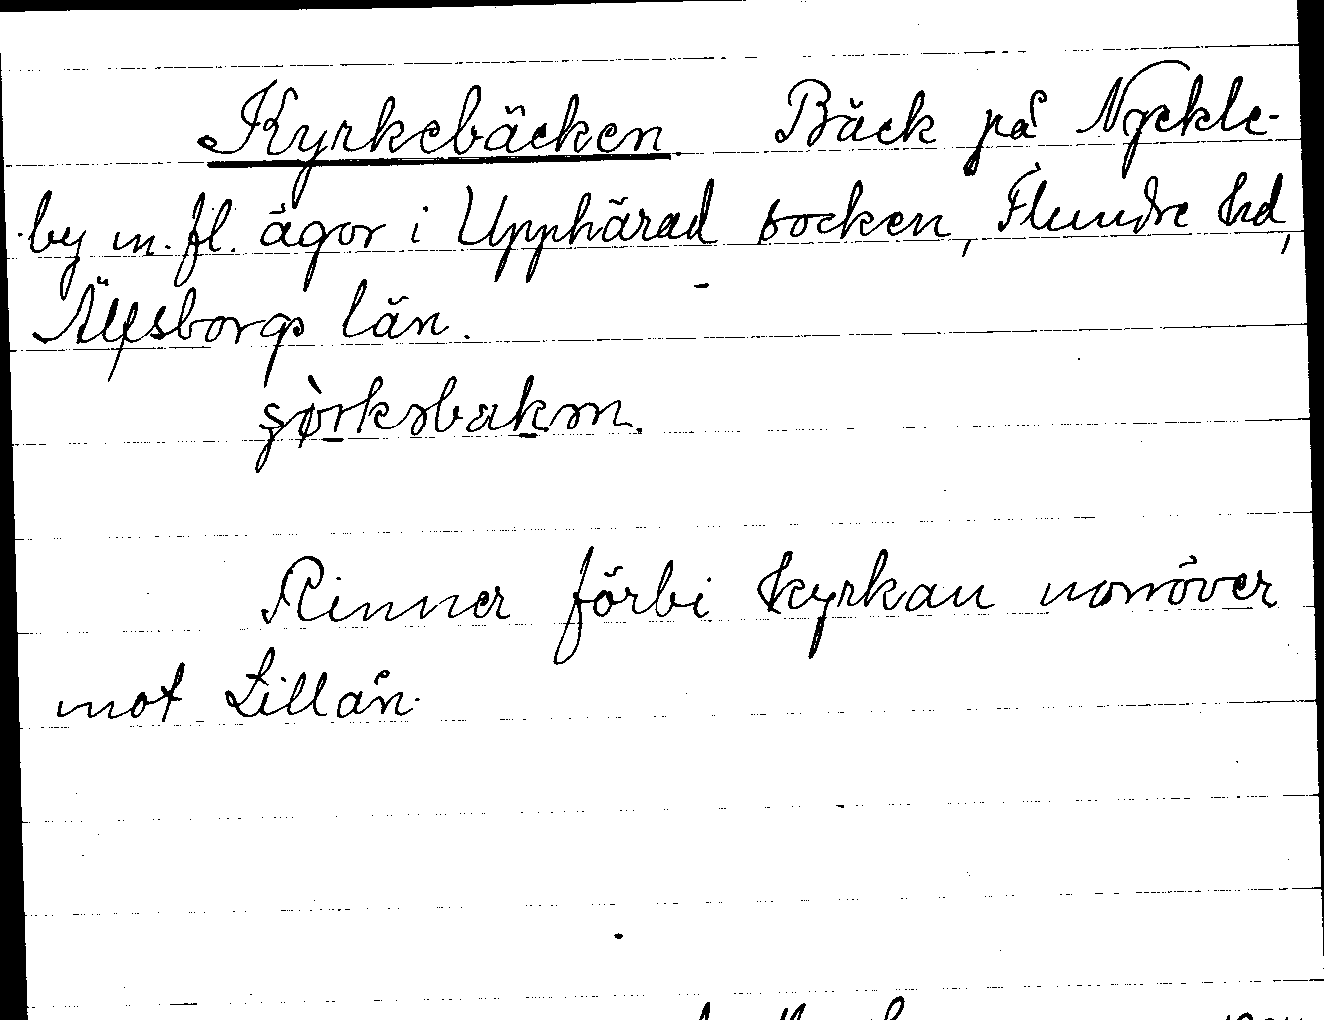 Kyrkebäcken. Bäck på Nyckle-
by m. fl. ägor i Upphärad socken, Flundre hd,
Älfsborgs län.
Rinner förbi kyrkan norröver
mot Lillån.